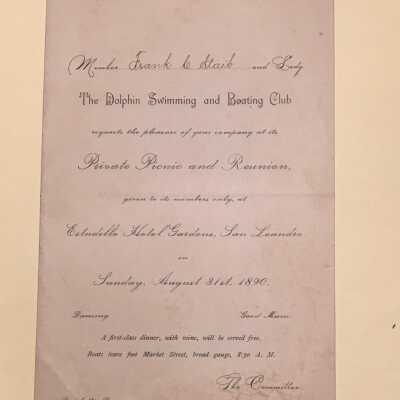 Member Frank C Staib and Lady
The Dolphin Swimming and Boating Club
requests the pleasure of your company at its
Private Picnic and Reunion,
given to its members only, at
Estudillo Hotel Gardens, San Leandro
on
Sunday, August 31st. 1890.
Dancing Good Music
A first-class dinner, with wine, will be served free.
Boats leave foot Market Street, broad gauge, 8.30 A. M.
The Committee